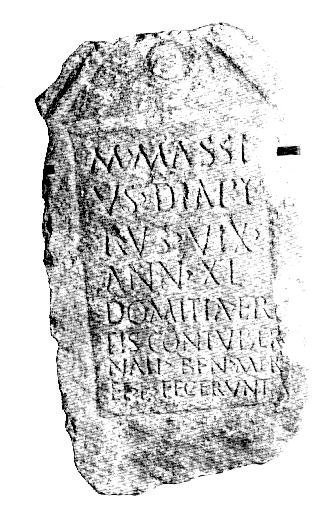 M·MASSI
VS·DIAPY
RVS·VIX·
ANN·XL
DOMITIA·ER
TIS CONTVBER
NALI·BEN·MER
FECERVNT